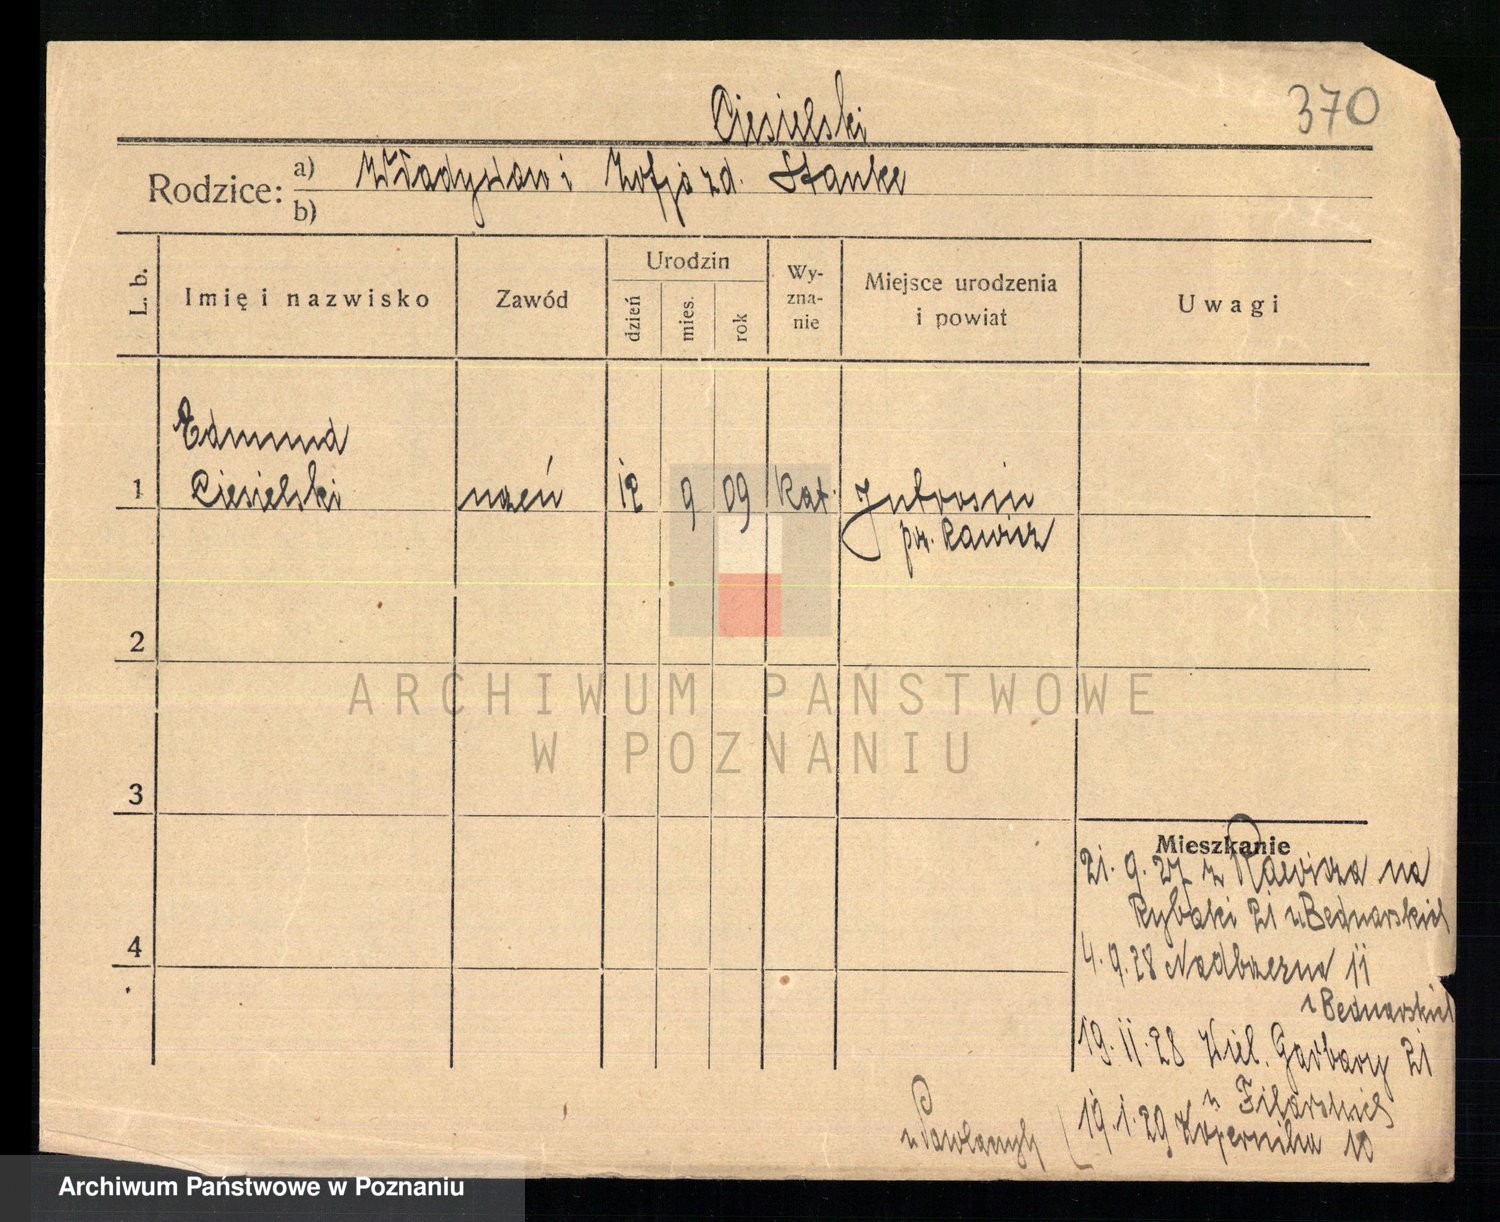 Ciesielski
370
Rodzice: a) Władysław i Zofja zd. Stanke
b)
L. b.
Imię i nazwisko
Zawód
Urodzin
dzień
mies.
rok
Wy-
zna-
nie
Miejsce urodzenia
i powiat
Uwagi
Edmund
1 Ciesielski uczeń 12 9 09 kat. Jutrosin
pw. Rawicz
2
3
4
ARCHIWUM PAŃSTWOWE
W POZNANIU
Mieszkanie
21. 9. 27 z Rawicza na
Rybaki 21 u Bednarskich
4. 9. 28 Nadbrzeżna 11
u Bednarskich
19. 11. 28 Wiel. Garbary 21
u
19. 1. 29 Kopernika 10
u
Archiwum Państwowe w Poznaniu